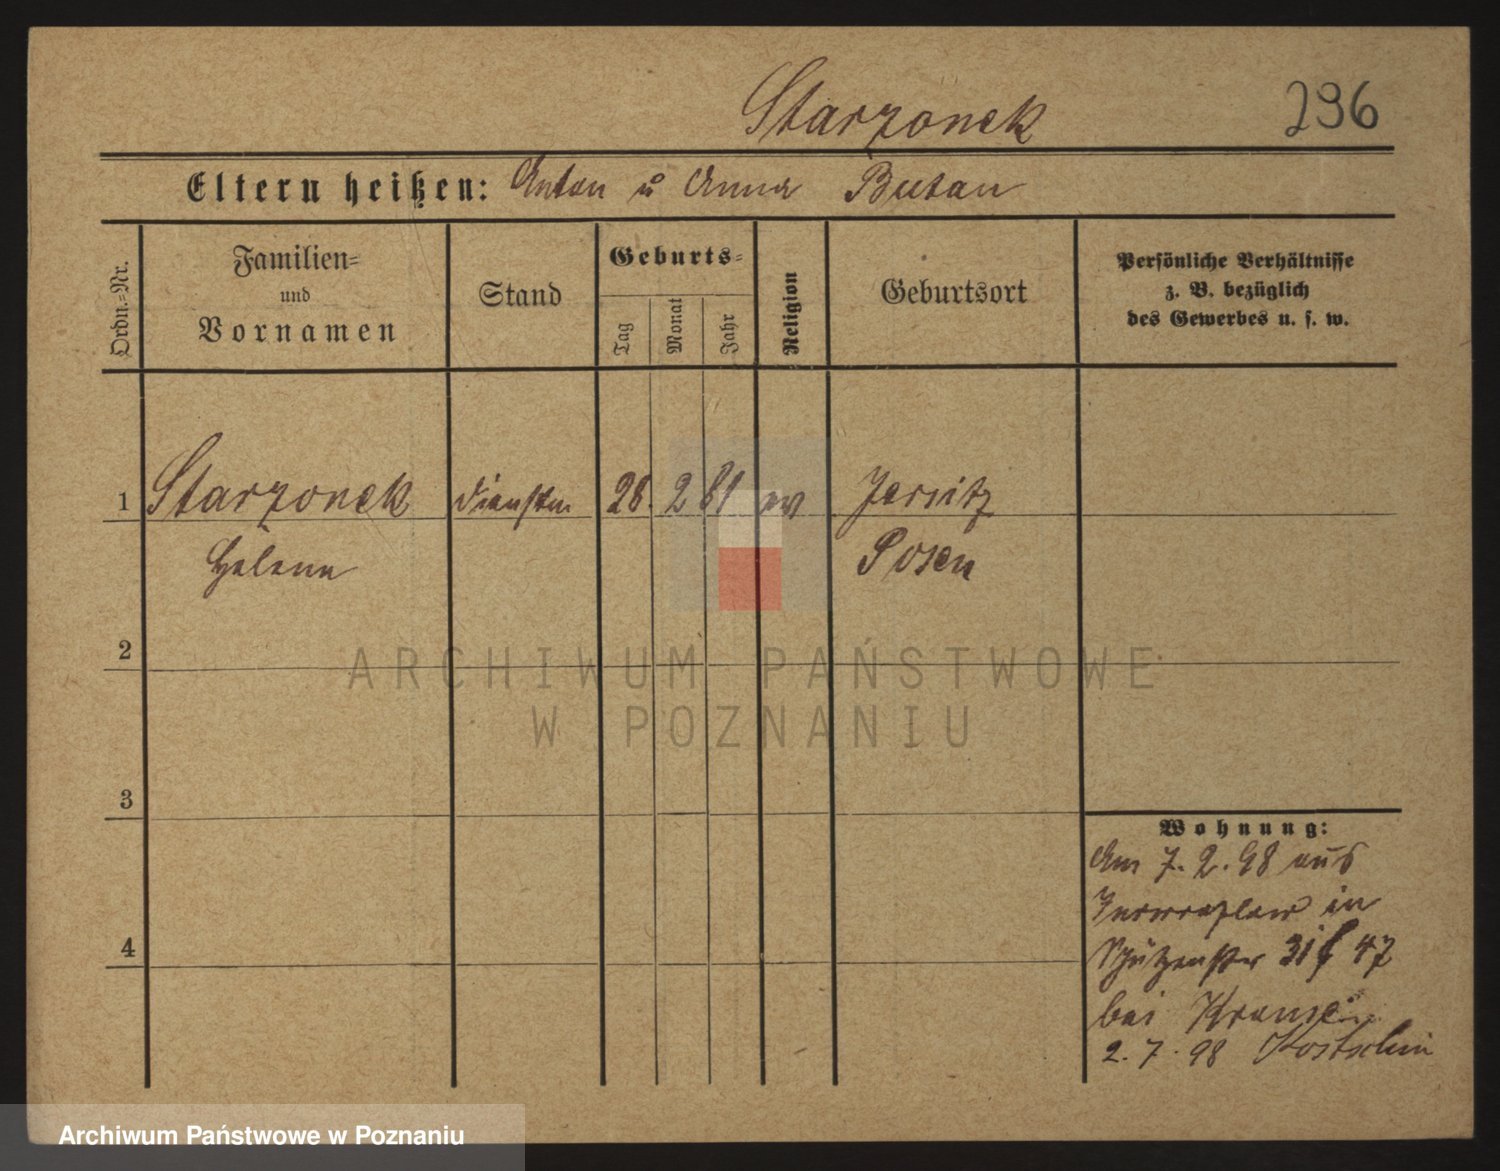 Starzonek 296
Eltern heißen: Anton u Anna Butan
Ordn.-Nr.
Familien-
und
Vornamen
Stand
Geburts-
Tag
Monat
Jahr
Religion
Geburtsort
Persönliche Verhältnisse
z. B. bezüglich
des Gewerbes u. s. w.
1 Starzonek 28. 2 81 Jersitz
Helene Posen
2
3
4
Wohnung:
Am 7. 2. 98 aus
in
Schützenstr 31 47
bei
2. 7. 98 Kostschin
ARCHIWUM PAŃSTWOWE
W POZNANIU
Archiwum Państwowe w Poznaniu